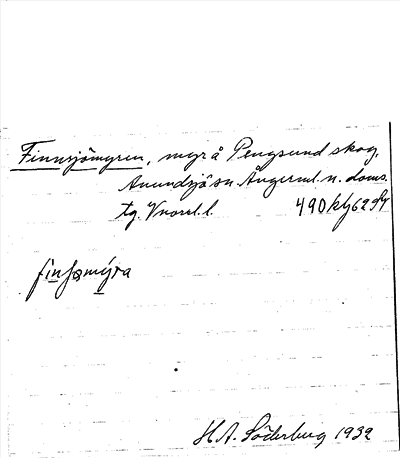 Finnsjömyren, myr å Pengsund skog,
Anundsjö sn. Ångerml. n. doms.
tg. Vnorrl. l. 490
H. A. Söderberg 1932